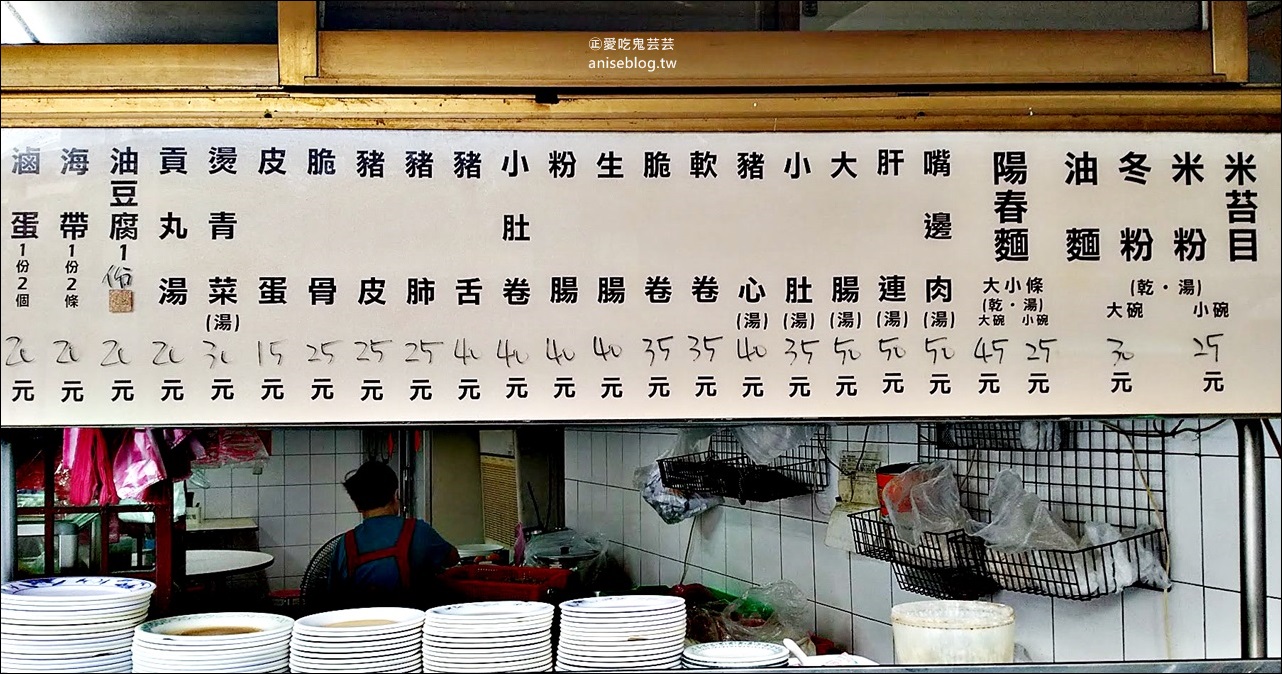 ㊣愛吃鬼芸芸
aniseblog.tw
米苔目
米粉
冬粉
油麵
(乾・湯)
小碗 25元
大碗 30元
陽春麵
大小條
(乾・湯)
小碗 25元
大碗 45元
嘴邊肉(湯) 50元
肝連(湯) 50元
大腸(湯) 50元
小肚(湯) 35元
豬心(湯) 40元
軟卷 35元
脆卷 35元
生腸 40元
粉腸 40元
小肚卷 40元
豬舌 40元
豬肺 25元
豬皮 25元
脆骨 25元
皮蛋 15元
燙青菜(湯) 30元
貢丸湯 20元
油豆腐1份 20元
海帶1份2條 20元
滷蛋1份2個 20元